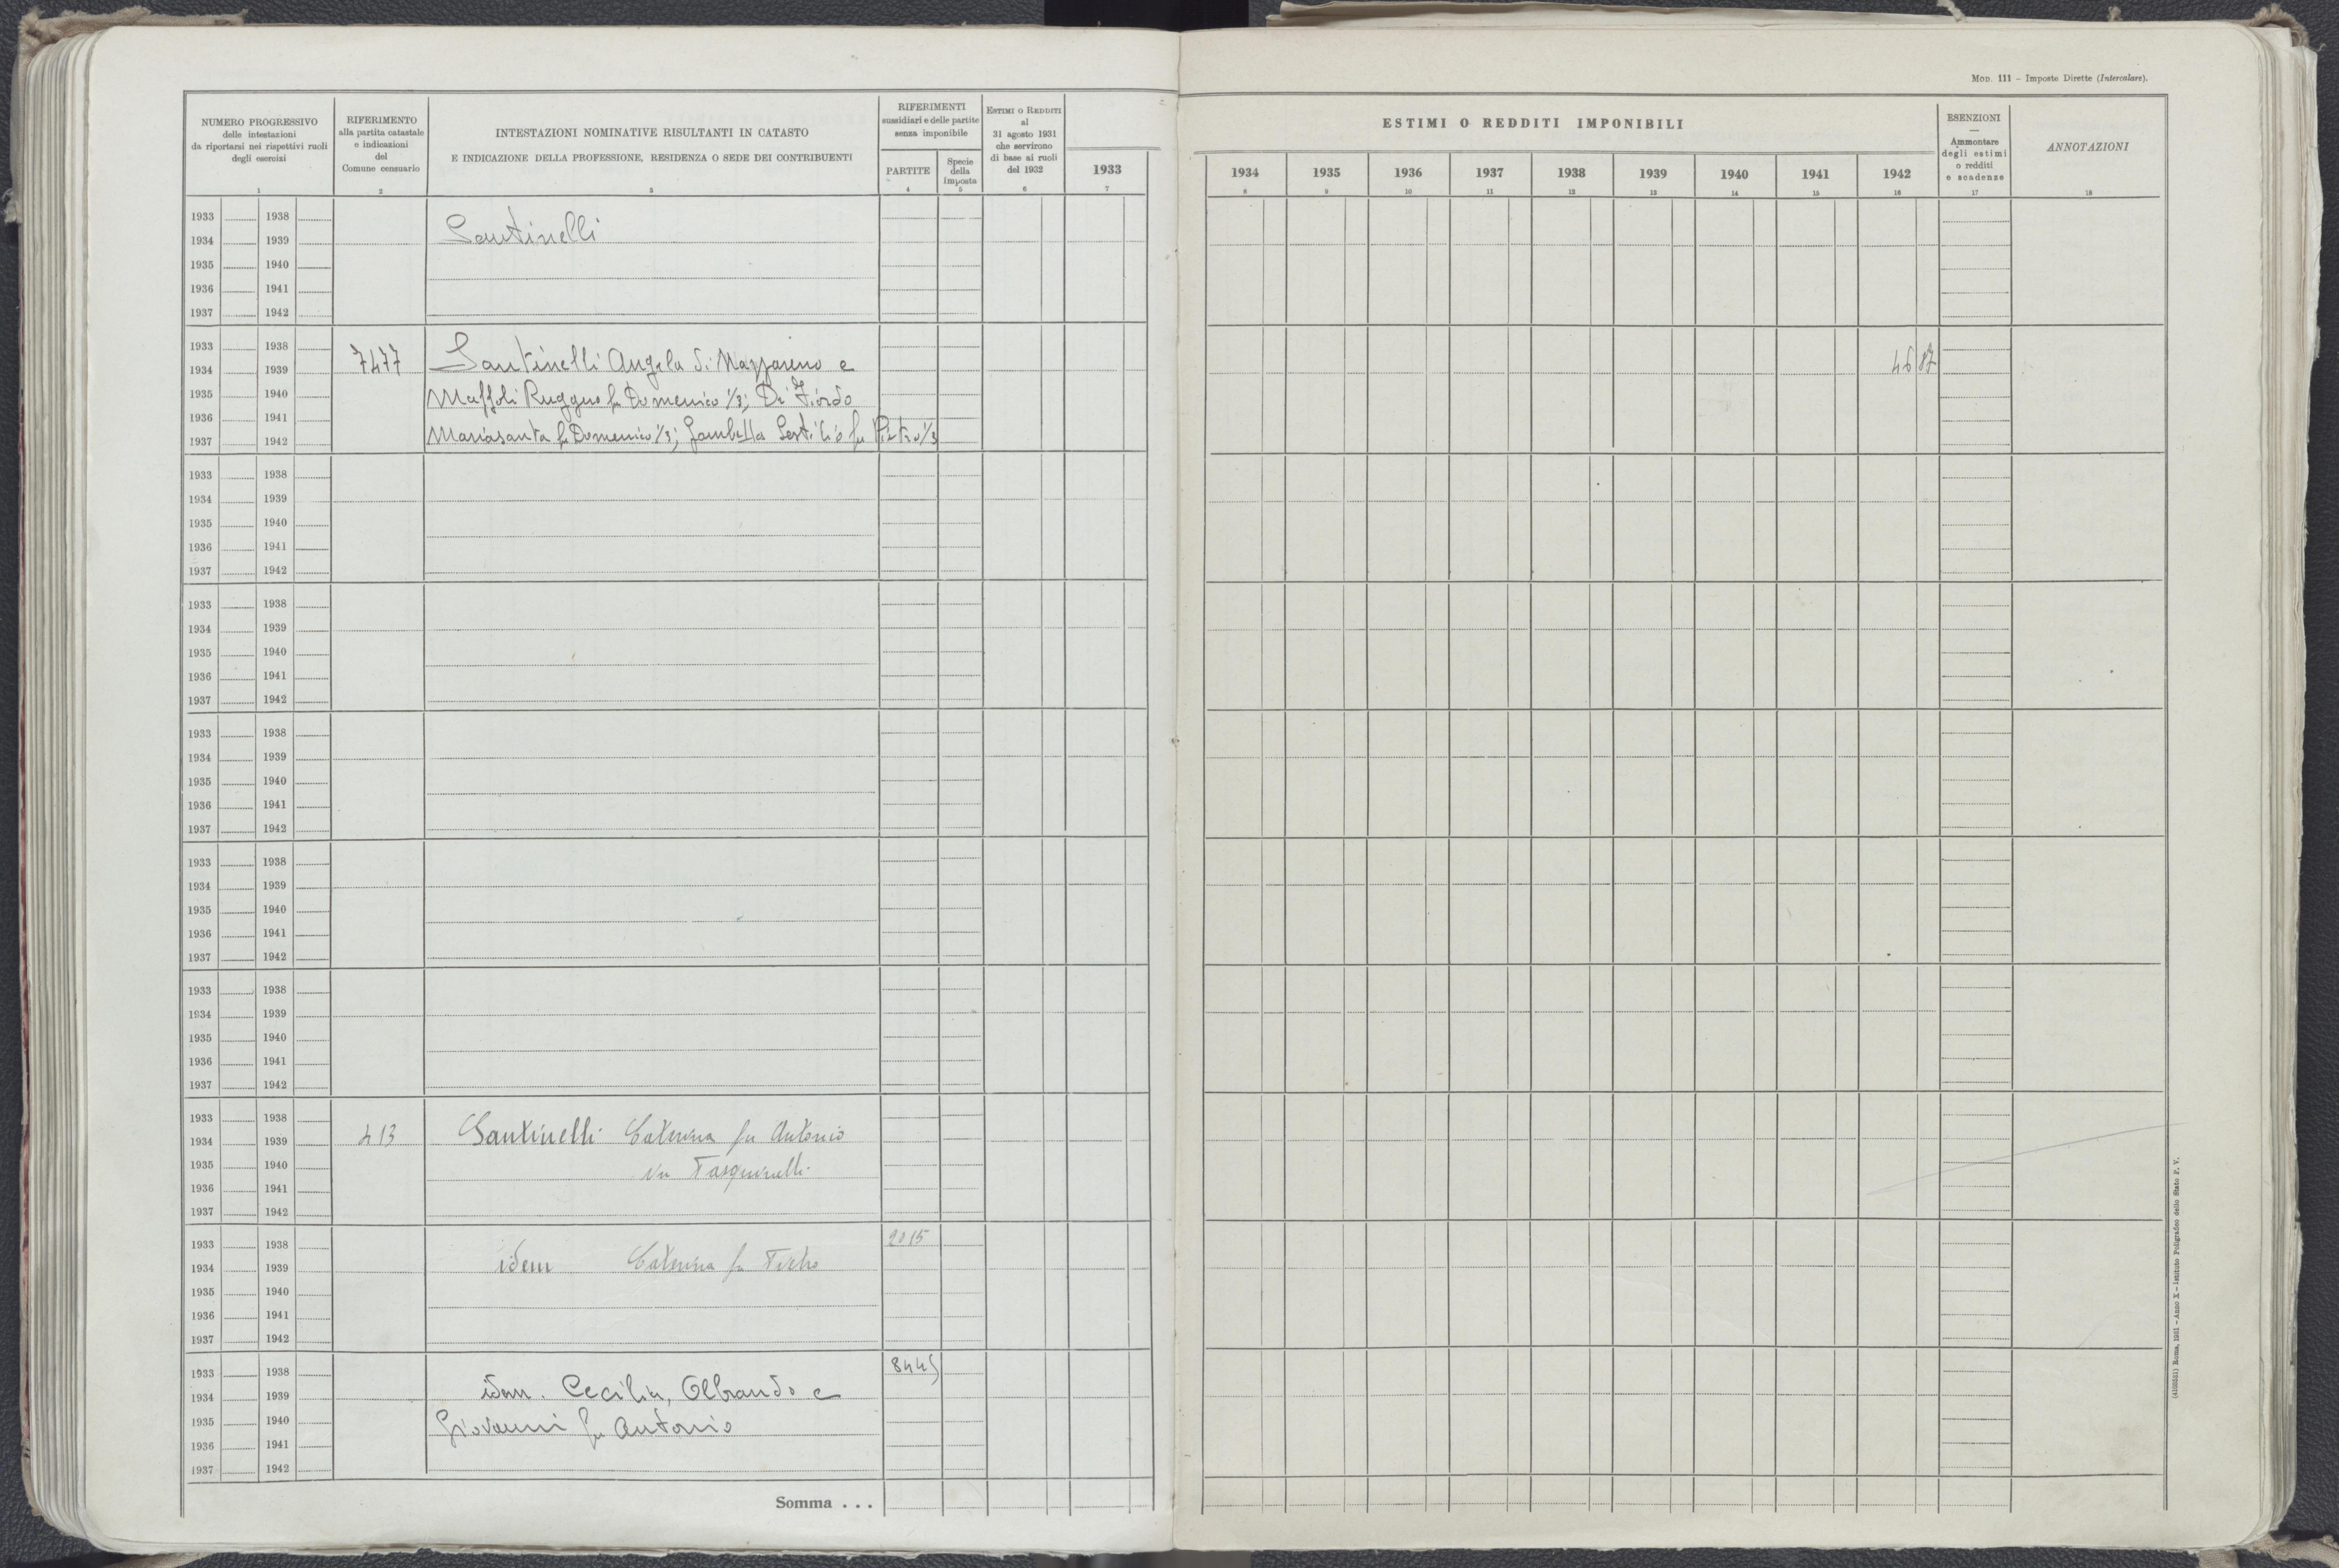 Mod. 111 - Imposte Dirette (Intercalare).
NUMERO PROGRESSIVO
delle intestazioni
da riportarsi nei rispettivi ruoli
degli esercizi
1
RIFERIMENTO
alla partita catastale
e indicazioni
del
Comune censuario
2
INTESTAZIONI NOMINATIVE RISULTANTI IN CATASTO
E INDICAZIONE DELLA PROFESSIONE, RESIDENZA O SEDE DEI CONTRIBUENTI
3
RIFERIMENTI
sussidiari e delle partite
senza imponibile
PARTITE
4
Specie
della
imposta
5
ESTIMI O REDDITI
al
31 agosto 1931
che servirono
di base ai ruoli
del 1932
6
1933
7
ESTIMI O REDDITI IMPONIBILI
1934 1935 1936 1937 1938 1939 1940 1941 1942
8 9 10 11 12 13 14 15 16
ESENZIONI
—
Ammontare
degli estimi
o redditi
e scadenze
17
ANNOTAZIONI
18
1933 1938
1934 1939 Santinelli
1935 1940
1936 1941
1937 1942
1933 1938
1934 1939 7477 Santinelli Angela di Nazzareno e 46 87
1935 1940 Maffoli Ruggero fu Domenico 1/3; Di Fiordo
1936 1941
1937 1942 Mariasanta fu Domenico 1/3; Gambella Sestilio fu Pietro 1/3
1933 1938
1934 1939
1935 1940
1936 1941
1937 1942
1933 1938
1934 1939
1935 1940
1936 1941
1937 1942
1933 1938
1934 1939
1935 1940
1936 1941
1937 1942
1933 1938
1934 1939
1935 1940
1936 1941
1937 1942
1933 1938
1934 1939
1935 1940
1936 1941
1937 1942
1933 1938
1934 1939 413 Santinelli Caterina fu Antonio
1935 1940 in Pasquinelli
1936 1941
1937 1942
1933 1938 2015
1934 1939 idem Caterina fu Pietro
1935 1940
1936 1941
1937 1942
1933 1938 8445
1934 1939 idem. Cecilia, Olbrando e
1935 1940 Giovanni fu Antonio
1936 1941
1937 1942
Somma . . .
(4100531) Roma, 1931 - Anno X - Istituto Poligrafico dello Stato P. V.